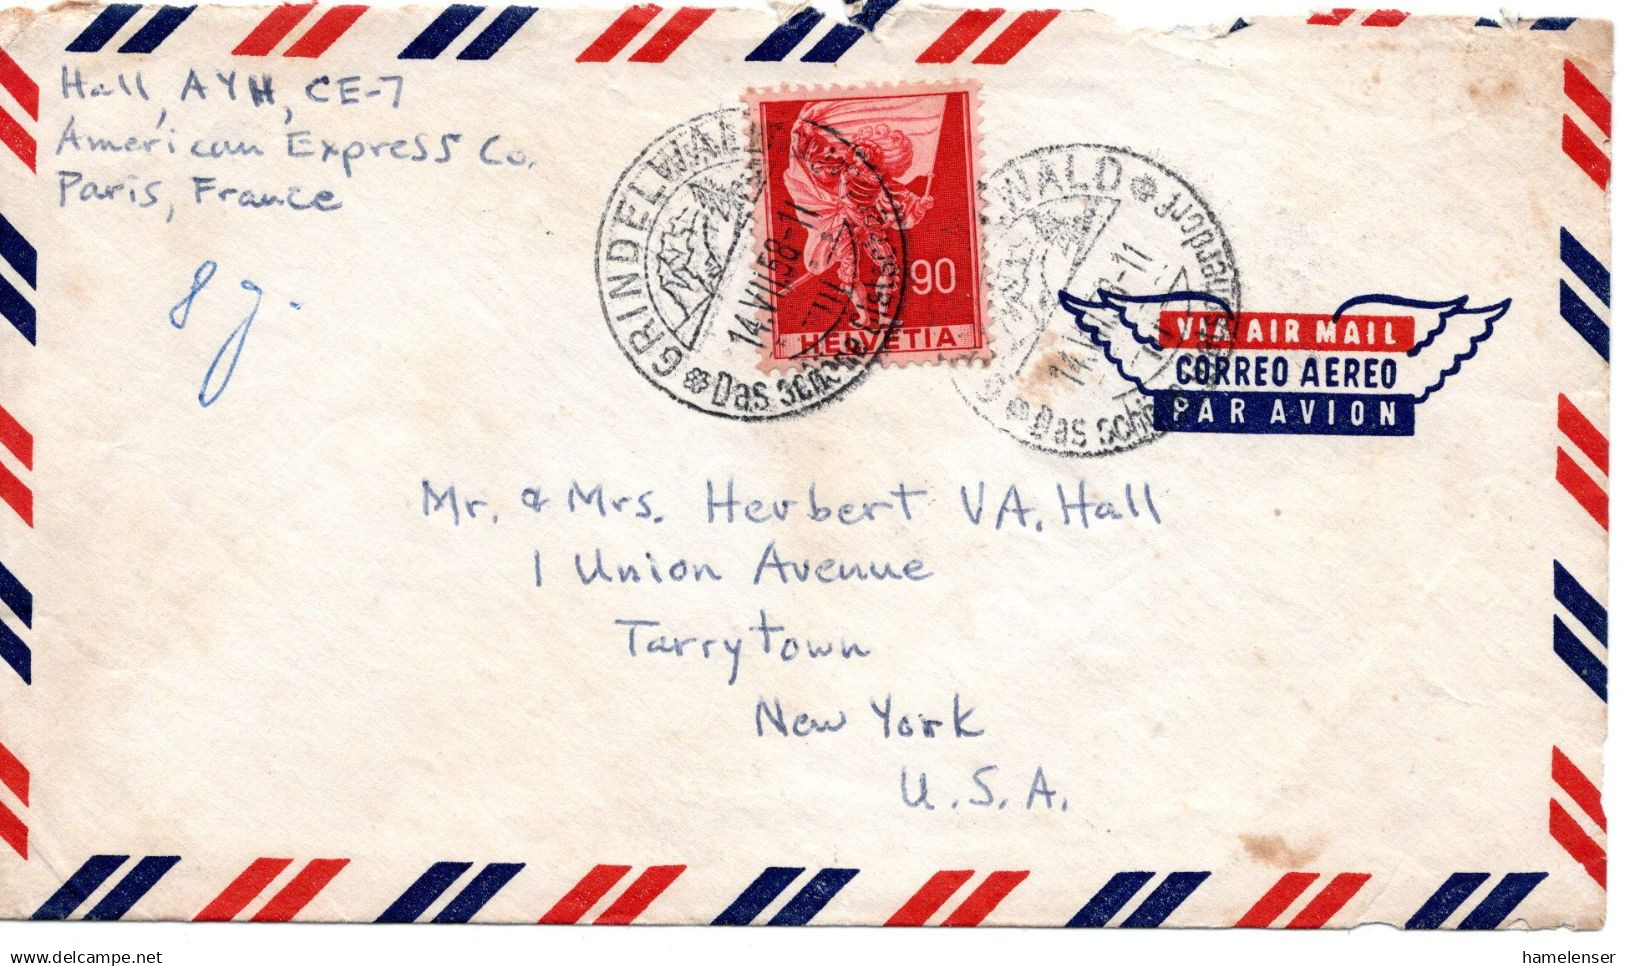 Hall, AYH, CE-7
American Express Co.
Paris, France
8 g.
GRINDELWALD
14.VII.58-11
Das schöne
90
HELVETIA
WALD
14.VII
-11
Das schö
VIA AIR MAIL
CORREO AEREO
PAR AVION
Mr. & Mrs. Herbert V A. Hall
1 Union Avenue
Tarrytown
New York
U.S.A.
delcampe.net
hamelenser